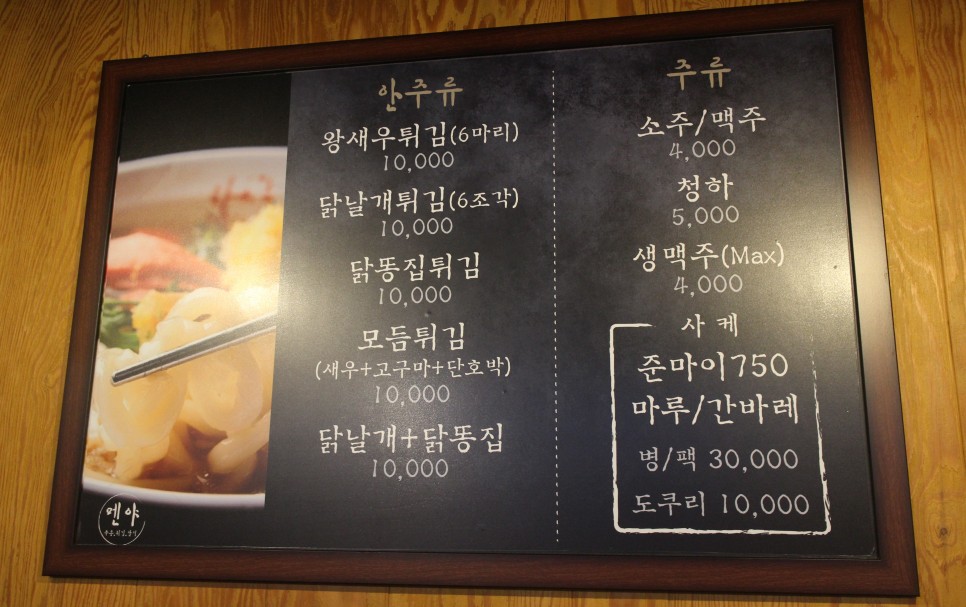 안주류
왕새우튀김(6마리)
10,000
닭날개튀김(6조각)
10,000
닭똥집튀김
10,000
모듬튀김
(새우+고구마+단호박)
10,000
닭날개+닭똥집
10,000
주류
소주/맥주
4,000
청하
5,000
생맥주(Max)
4,000
사케
준마이750
마루/간바레
병/팩 30,000
도쿠리 10,000
멘야